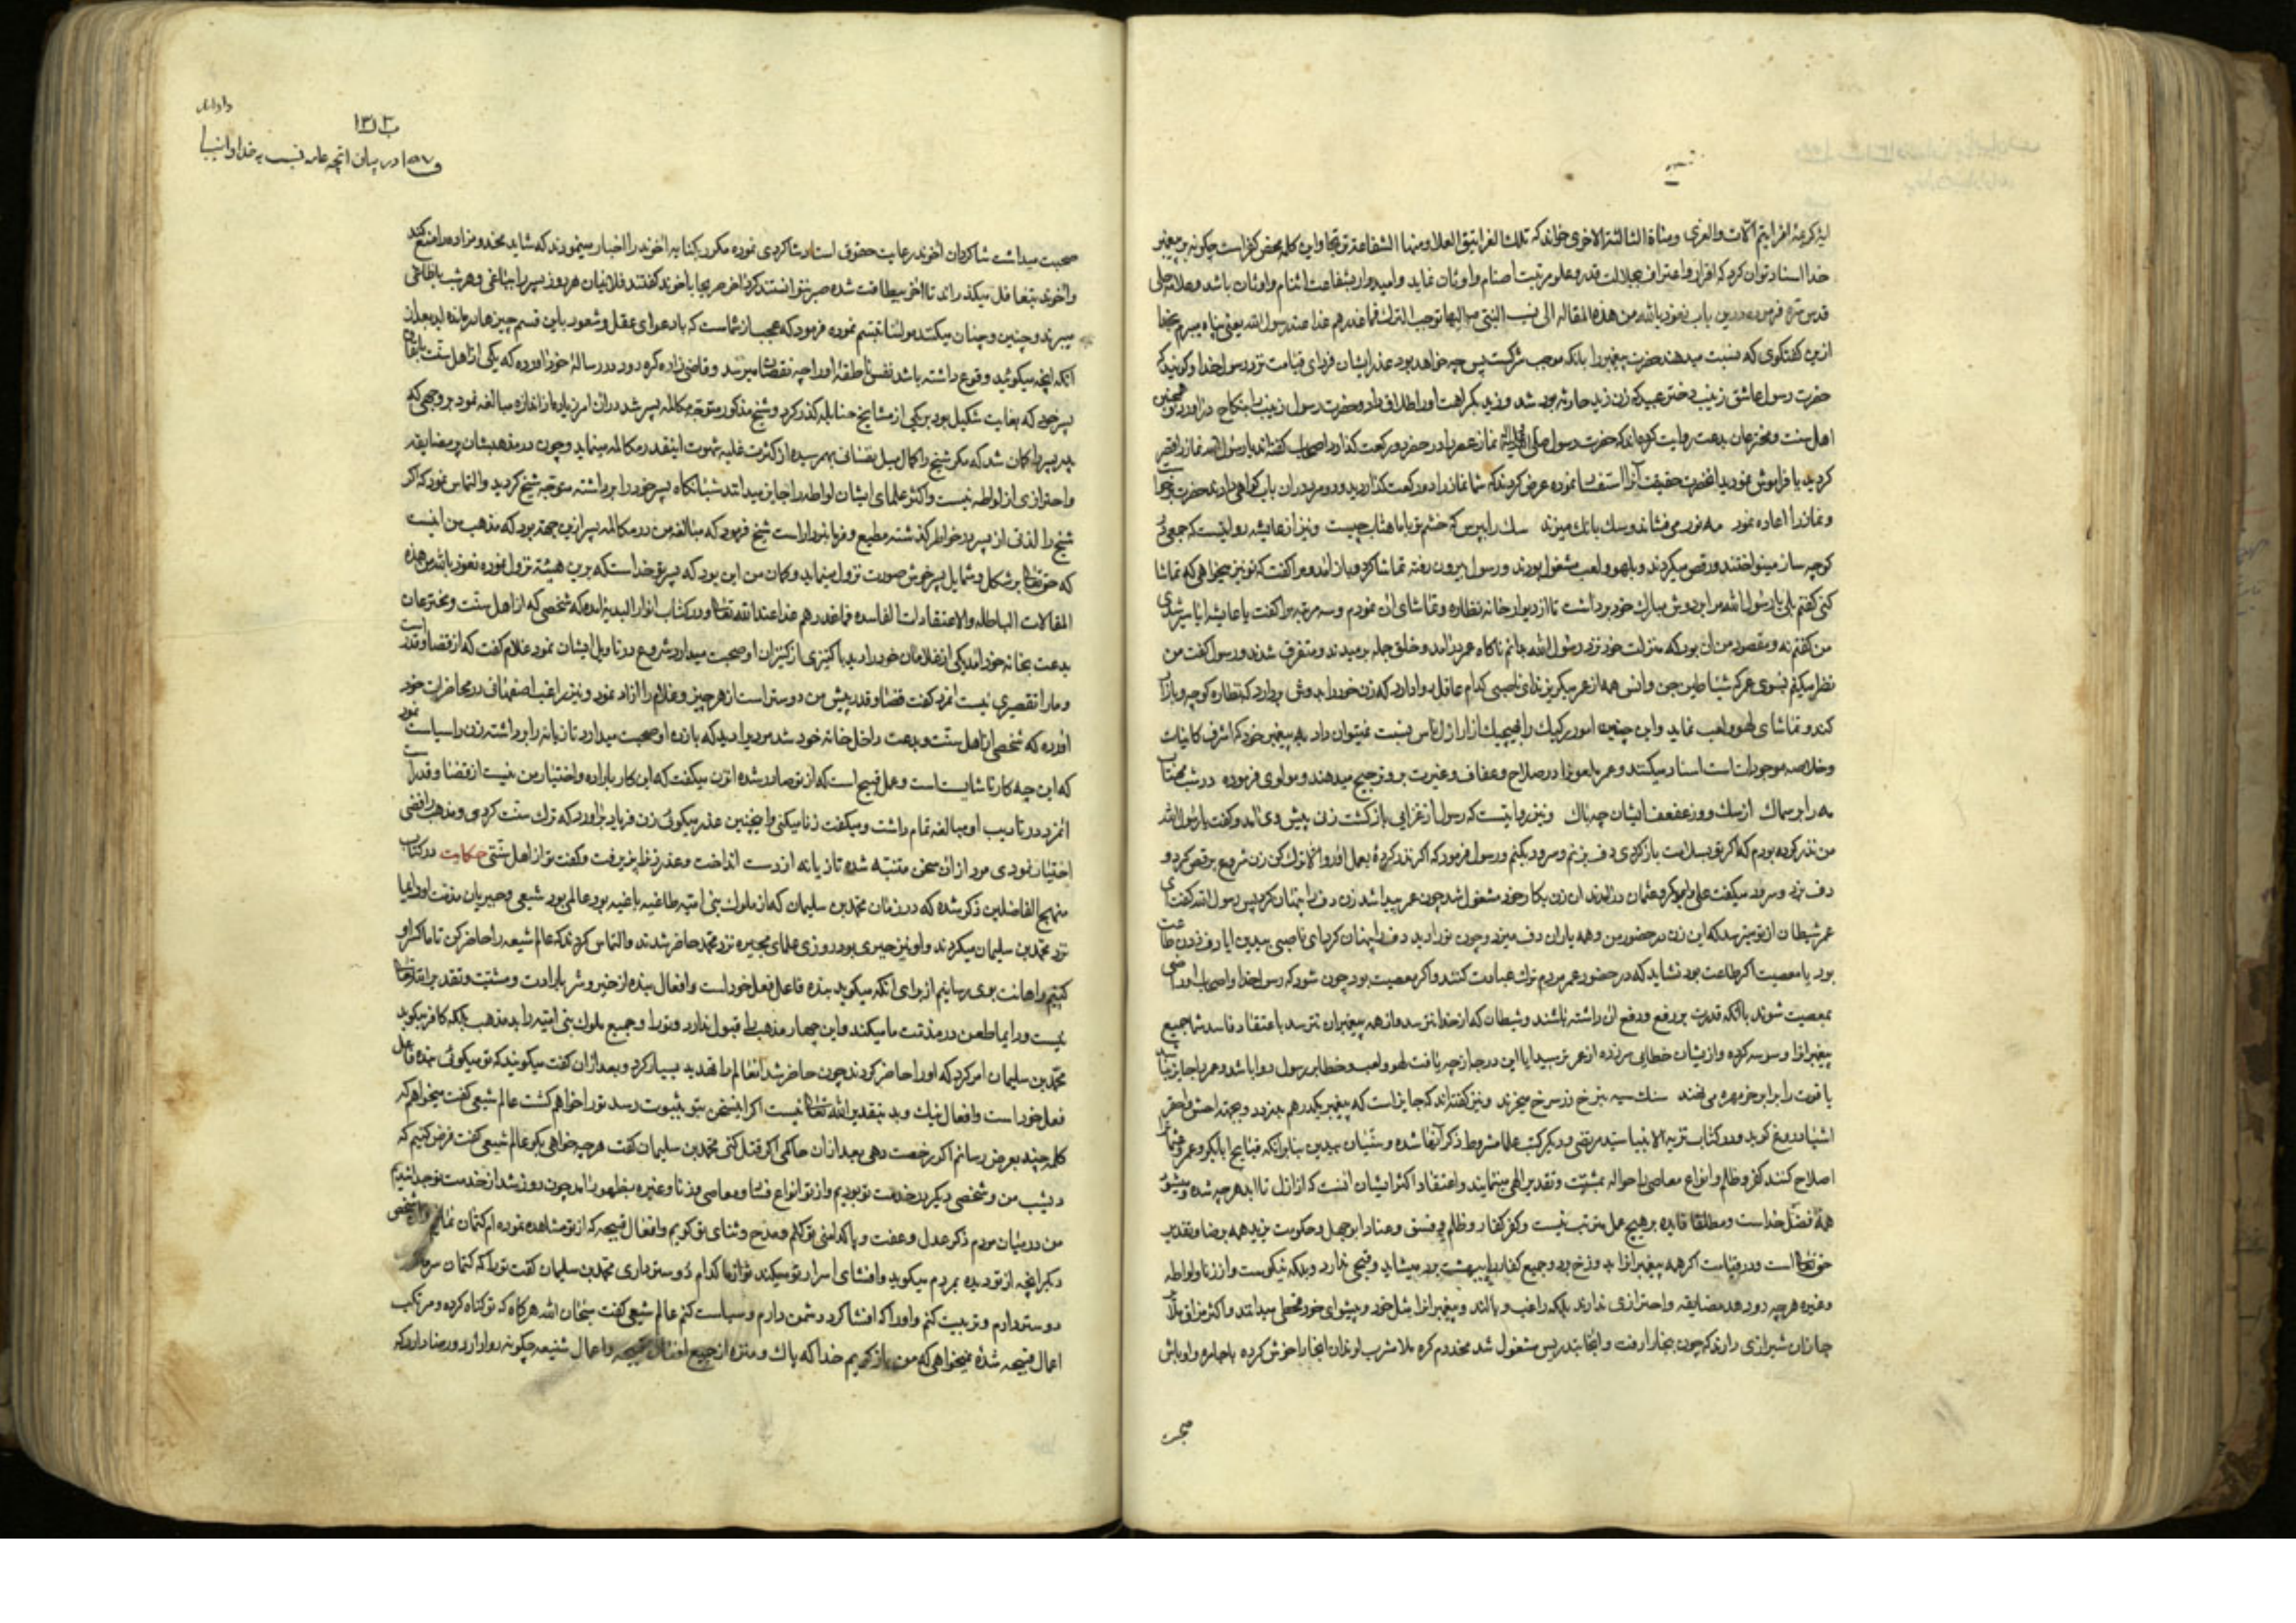 لیذکر عند افرایتم اللات والعزی ومناة الثالثة الاخری خواند که تلک الغرانیق العلا ومنها الشفاعة ترتجا واین کلمه محض کفر است چکونه به پیغمبر
خدا اسناد توان کرد که اقرار واعتراف بجلالت قدر وعلو مرتبت اصنام واوثان نماید وامیدوار بشفاعت اصنام واوثان باشد
قدس سره فرموده درین باب نعوذ بالله من هذه المقالة الی نسب النبی الیها توجب الترک فما عذرهم غدا عند رسول الله یعنی پناه میبرم بخدا
ازین کفتکوی که نسبت میدهند حضرت پیغمبر را بلکه موجب شرکست پس چه خواهد بود عذر ایشان فردای قیامت نزد رسول خدا وکویند که
حضرت رسول عاشق زینب دختر که زن زید حارثه بود شد وزید بکراهت اورا طلاق داد وحضرت رسول زینب را بنکاح در اورد وهمچنین
اهل سنت ومخترعان بدعت روایت کرده‌اند که حضرت رسول نماز عصر را در حضر دو رکعت کذارد اصحاب کفتند یا رسول الله نماز را قصر
کردید یا فراموش نمودید انحضرت حقیقت انرا استفسار نموده عرض کردند که شما نماز را دو رکعت کذاردید ودو مرد دران باب کواهی دادند حضرت
ونماز را اعاده نمود مه نور می فشاند وسک بانک میزند سک را بپرس که خشم تو با ماهتاب چیست ونیز از عایشه روایتست که جمعی
کوچه ساز مینواختند ورقص میکردند وبلهو ولعب مشغول بودند ورسول بیرون رفته تماشا کرد وباز امد ومرا کفت که تو نیز میخواهی که تماشا
کنی کفتم بلی یا رسول الله مرا بر دوش مبارک خود برداشت تا از دیوار خانه نظاره وتماشای ان نمودم وسه مرتبه مرا کفت یا عایشه ایا سیر شدی
من کفتم نه ومقصود من ان بود که منزلت خود نزد رسول الله بدانم ناکاه عمر در امد وخلق جمله برمیدند ومتفرق شدند ورسول کفت من
نظر میکنم بسوی عمر که شیاطین جن وانس همه از عمر میکریزند ای ناصبی کدام عاقل روا دارد که زن خود را بدوش بردارد که نظاره کوچه وبازار
کند وتماشای لهو ولعب نماید واین چنین امور رکیک را بهیچیک از اراذل ناس نسبت نمیتوان داد به پیغمبر خود که اشرف کاینات
وخلاصه موجودات است اسناد میکنند وعمر را در صلاح وعفاف وغیرت برو ترجیح میدهند ومولوی فرموده در شب مهتاب
مه را بر سماک از سک وعفعف ایشان چه باک ونیز روایتست که رسول از غزایی باز کشت زنی پیش وی امد وکفت یا رسول الله
من نذر کرده بودم که اکر تو بسلامت باز کردی دف بزنم وسرود بکنم ورسول فرمود که اکر نذر کردهٔ بعمل اور والا ترک کن زن شروع برقص کرد و
دف زد وسرود میکفت علی وابوبکر وعثمان در امدند ان زن بکار خود مشغول شد چون عمر پیدا شد زن دف را پنهان کرد پس رسول الله کفت ای
عمر شیطان از تو میترسد که این زن در حضور من وهمه یاران دف میزد وچون تو را دید دف را پنهان کرد ای ناصبی ببین ایا دف زدن طاعت
بود یا معصیت اکر طاعت بود نشاید که در حضور عمر مردم ترک عبادت کنند واکر معصیت بود چون شود که رسول خدا واصحاب او راضی
بمعصیت شوند با انکه قدرت بر رفع ودفع ان داشته باشند وشیطان که از خدا نترسد واز همه پیغمبران نترسد باعتقاد فاسد شما جمیع
پیغمبرانرا وسوسه کرده وازیشان خطایی سر زده از عمر ترسید ایا این درجه از چه یافت لهو ولعب وخطا بر رسول روا باشد وعمر را جایز
یاقوت را برابر خرمهره می نهند سنک سیه بنرخ زر سرخ میخرند ونیز کفته‌اند که جایز است که پیغمبر یکدرهم بدزدد وبجهة
اشیا دروغ کوید ودر کتاب تنزیه الانبیا سید مرتضی ودیکر کتب علما مشروط ذکر انها شده وسنیان بی‌دین بنا بر انکه قبایح ابابکر وعمر وعثمان
اصلاح کنند کفر وظلم وانواع معاصی را حواله بمشیت وتقدیر الهی مینمایند واعتقاد اکثر ایشان انست که از ازل تا ابد هرچه شده ومیشود
همه فضل خداست ومطلقا فایده بر هیچ عمل مترتب نیست وکفر کفار وظلم وفسق وعناد ابوجهل وحکومت یزید همه برضا وتقدیر
حق تعالی است ودر قیامت اکر همه پیغمبرانرا بدوزخ برد وجمیع کفار را ببهشت برد میشاید وقبحی ندارد وبلکه نیکوست واز زنا ولواطه
وغیره هرچه رو دهد مضایقه واحترازی ندارند بلکه راغب ومایلند وپیغمبرانرا مثل خود وپیشوای خود مخطی میدانند
جانان شیرازی دارند که چون ببخارا رفت وانجا بتدریس مشغول شد مخدوم کره ملا مشرب لوندان انجا را خوش کرده با جلره واوباش
صحبت
داوداند
باب ۱۳۲
ف ۱۵۷ در بیان انچه عامه نسبت به خدا وانبیا
صحبت میداشت شاکردان اخوند رعایت حقوق استاد وشاکردی نموده مکرر بکنایه اخوند را اخبار مینمودند که شاید مخدوم زاده را منع کند
واخوند بتغافل میکذراند تا اخر بیطاقت شده صبر نتوانستند کرد اخر صریحا باخوند کفتند فلانیان هر روز پسر را بباغی وهر شب باطاقی
میبرند وچنین وچنان میکنند مولانا تبسم نموده فرمود که عجب از شماست که با دعوای عقل وشعور باین قسم چیزها در مانده اید بعد از
انکه انچه میکوئید وقوع داشته باشد نفس ناطقهٔ اورا چه نقصان میرسد وقاضی زاده کره رود در رسالهٔ خود اورده که یکی از اهل سنت باتفاق
پسر خود که بغایت شکیل بود بر یکی از مشایخ حنابله کذر کرد وشیخ مذکور متوجه مکالمه پسر شد دران امر زیاد از اندازه مبالغه نمود بر وجهی که
پدر پسر را کمان شد که مکر شیخ را کمال میل نفسانی بهم رسیده از کثرت غلبه شهوت اینقدر مکالمه مینماید وچون در مذهبشان پر مضایقه
واحترازی از لواطه نیست واکثر علمای ایشان لواطه را جایز میدانند شبانکاه پسر خود را برداشته متوجه شیخ کردید والتماس نمود که اکر
شیخ را لذتی از پسر در خواطر کذشته مطیع وفرمانبردار است شیخ فرمود که مبالغه من در مکالمه پسر ازین جهة بود که مذهب من انست
که حق تعالی بر شکل وشمایل پسر خوش صورت نزول مینماید وکمان من این بود که پسر تو خداست که برین هیئته نزول نموده نعوذ بالله من هذه
المقالات الباطله والاعتقادات الفاسده فما عذرهم غدا عند الله تعالی ودر کتاب انوار البدریه امده که شخصی که از اهل سنت ومخترعان
بدعت بخانه خود امد یکی از غلامان خود را دید با کنیزی از کنیزان او صحبت میدارد شروع در تادیب ایشان نمود غلام کفت که از قضا وقدر است
ومارا تقصیری نیست انمرد کفت قضا وقدر پیش من دوستر است از هر چیز وغلام را ازاد نمود ونیز راغب اصفهانی در محاضرات خود
اورده که شخصی از اهل سنت وبدعت داخل خانه خود شد مردیرا دید که با زن او صحبت میدارد تازیانه را برداشته زن را سیاست نمود
که این چه کار ناشایست است وعمل قبیح است که از تو صادر شده انزن میکفت که این کار باراده واختیار من نیست از قضا وقدر است
انمرد در تادیب او مبالغه تمام داشت ومیکفت زنا میکنی واینچنین عذر میکوئی زن فریاد براورد که ترک سنت کردی ومذهب رافضی
اختیار نمودی مرد ازان سخن متنبه شده تازیانه از دست انداخت وعذر زنرا پذیرفت وکفت تو از اهل سنتی حکایت در کتاب
منهج الفاضلین ذکر شده که در زمان محمد بن سلیمان که از ملوک بنی امیه طاغیه باغیه بود عالمی بود شیعی وجبریان مذمت او دایما
نزد محمد بن سلیمان میکردند واو نیز جبری بود روزی علمای مجبره نزد محمد حاضر شدند والتماس کردند که عالم شیعه را حاضر کن تا ما کفر او
واهانت بوی رسانیم از برای انکه میکوید بنده فاعل فعل خود است وافعال بنده از خیر وشر بارادت ومشیت وتقدیر الله تعالی
نیست ودایما طعن در مذمت ما میکند واین چهار مذهب را قبول ندارد وتورا وجمیع ملوک بنی امیه را بد مذهب بلکه کافر میکوید
محمد بن سلیمان امر کرد که اورا حاضر کردند چون حاضر شد انعالم را تهدید بسیار کرد وبعد ازان کفت میکویند که تو میکوئی بنده فاعل
فعل خود است وافعال نیک وبد بتقدیر الله تعالی نیست اکر این سخن بتو بثبوت رسد تورا خواهم کشت عالم شیعی کفت میخواهم که
کلمه چند بعرض رسانم اکر رخصت دهی بعد ازان حاکمی اکر قتل کنی محمد بن سلیمان کفت هرچه خواهی بکو عالم شیعی کفت فرض کنیم که
دیشب من وشخصی دیکر در خدمت تو بودیم واز تو انواع فساد ومعاصی وزنا وغیره بظهور امد چون روز شد از خدمت تو جدا شدیم
من در میان مردم ذکر عدل وعفت وپاکدامنی تو کنم ومدح وثنای تو کویم وافعال قبیحه که از تو مشاهده نموده ام کتمان نمایم وان شخص
دیکر انچه از تو دیده بمردم میکوید وافشای اسرار تو میکند تو ازما کدام دوستر داری محمد بن سلیمان کفت تورا که کتمان سر ما
دوستر دارم وتربیت کنم واورا که افشا کرد دشمن دارم وسیاست کنم عالم شیعی کفت سبحان الله هرکاه که تو کناه کرده ومرتکب
اعمال قبیحه شدهٔ میخواهی که من باز نکویم خدا که پاک ومنزه از جمیع افعال قبیحه واعمال شنیعه چکونه روا دارد ورضا دارد که